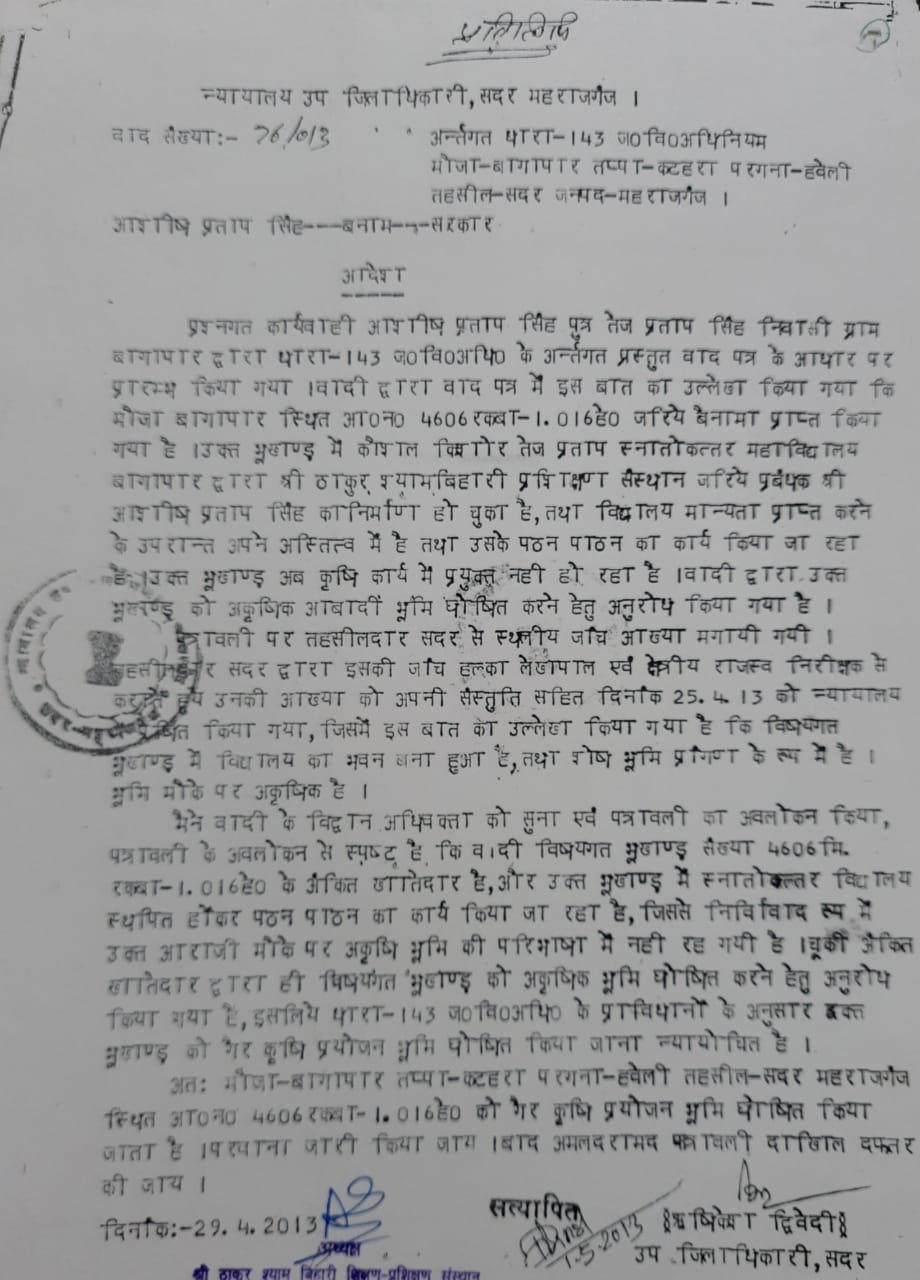 प्रतिलिपि
न्यायालय उप जिलाधिकारी, सदर महराजगंज ।
वाद संख्या:- 76/013 अर्न्तगत धारा-143 ज0वि0अधिनियम
मौजा-बागापार तप्पा-कटहरा परगना-हवेली
तहसील-सदर जनपद-महराजगंज ।
आशीष प्रताप सिंह---बनाम---सरकार
आदेश
प्रश्नगत कार्यवाही आशीष प्रताप सिंह पुत्र तेज प्रताप सिंह निवासी ग्राम
बागापार द्वारा धारा-143 ज0वि0अधि0 के अर्न्तगत प्रस्तुत वाद पत्र के आधार पर
प्रारम्भ किया गया ।वादी द्वारा वाद पत्र में इस बात का उल्लेख किया गया कि
मौजा बागापार स्थित आ0न0 4606रकबा-1.016हे0 जरिये बैनामा प्राप्त किया
गया है ।उक्त भूखण्ड में कौशल किशोर तेज प्रताप स्नातोकत्तर महाविद्यालय
बागापार द्वारा श्री ठाकुर श्यामबिहारी प्रशिक्षण संस्थान जरिये प्रबंधक श्री
आशीष प्रताप सिंह कानिर्माण हो चुका है,तथा विद्यालय मान्यता प्राप्त करने
के उपरान्त अपने अस्तित्व में है तथा उसके पठन पाठन का कार्य किया जा रहा
है ।उक्त भूखण्ड अब कृषि कार्य में प्रयुक्त नही हो रहा है ।वादी द्वारा उक्त
भूखण्ड को अकृषिक आबादी भूमि घोषित करने हेतु अनुरोध किया गया है ।
पत्रावली पर तहसीलदार सदर से स्थलीय जाँच आख्या मगायी गयी ।
तहसीलदार सदर द्वारा इसकी जाँच हल्का लेखपाल एवं क्षेत्रीय राजस्व निरीक्षक से
कराते हुये उनकी आख्या को अपनी संस्तुति सहित दिनांक 25.4.13 को न्यायालय
किया गया,जिसमें इस बात का उल्लेख किया गया है कि विषयगत
भूखण्ड में विद्यालय का भवन बना हुआ है,तथा शेष भूमि प्रांगण के रूप में है ।
भूमि मौके पर अकृषिक है ।
मैने वादी के विद्वान अधिवक्ता को सुना एवं पत्रावली का अवलोकन किया,
पत्रावली के अवलोकन से स्पष्ट है कि वादी विषयगत भूखण्ड संख्या 4606मि.
रकबा-1.016हे0 के अंकित खातेदार है,और उक्त भूखण्ड में स्नातोकत्तर विद्यालय
स्थपित होकर पठन पाठन का कार्य किया जा रहा है,जिससे निर्विवाद रूप में
उक्त आराजी मौके पर अकृषि भूमि की परिभाषा में नही रह गयी है ।चूकी अंकित
खातेदार द्वारा ही विषयगत भूखण्ड को अकृषिक भूमि घोषित करने हेतु अनुरोध
किया गया है,इसलिये धारा-143 ज0वि0अधि0 के प्राविधानों के अनुसार उक्त
भूखण्ड को गैर कृषि प्रयोजन भूमि घोषित किया जाना न्यायोचित है ।
अत: मौजा-बागापार तप्पा-कटहरा परगना-हवेली तहसील-सदर महराजगंज
स्थित आ0न0 4606रकबा-1.016हे0 को गैर कृषि प्रयोजन भूमि घोषित किया
जाता है ।परवाना जारी किया जाय ।बाद अमलदरामद पत्रावली दाखिल दफ्तर
की जाय ।
दिनांक:-29.4.2013 सत्यापित §ऋषिकेश द्विवेदी§
1.5.2013
अध्यक्ष उप जिलाधिकारी,सदर
श्री ठाकुर श्याम बिहारी शिक्षण-प्रशिक्षण संस्थान